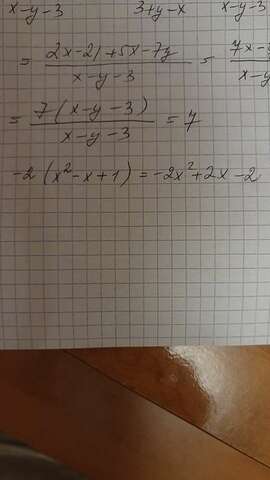 x-y-3 3+y-x x-y-3
= (2x-21+5x-7y)/(x-y-3) = 7x- / x-y
= 7(x-y-3)/(x-y-3) = 7
-2(x²-x+1)=-2x²+2x-2